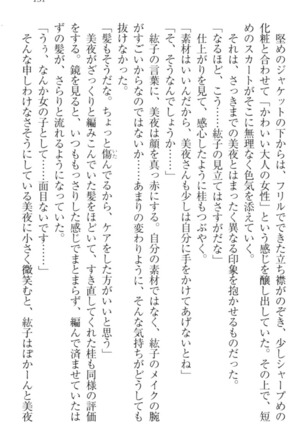 堅めのジャケットの下からは、フリルでできた立ち襟がのぞき、少しシャープめの
化粧と合わせて「かわいい大人の女性」という感じを醸し出していた。その上で、短
めのスカートがそこに無理なく色気を添えている。
それは、さっきまでの美夜とはまったく異なる印象を抱かせるものだった。
「なるほど、こう……紘子の見立てはさすがだな」
仕上がりを見て、感心したように桂もつぶやく。
「素材はいいんだから、美夜さんも少しは自分に手をかけてあげないとね」
「そ、そうなんでしょうか……」
紘子の言葉に、美夜は顔を真っ赤にする。自分の素材ではなく、紘子のメイクの腕
がすごいからなのではないだろうか――あまりの変わりように、そんな気持ちがどうしても
抜けなかった。
「髪もそうだな、ちょっと傷んでるから、ケアをした方がいいと思う」
いた
美夜がざっくりと編みこんでいた髪をほどいて、すき直してくれた桂も同様の評価
をする。鏡を見ると、いつももっさりした感じでまとまらず、編んで済ませていたは
ずの髪が、さらりと流れるようになっていた。
「うぅ、なんか女の子として……面目ないです……」
そんな申しわけなさそうにしている美夜に小さく微笑むと、紘子はぽかーんと美夜